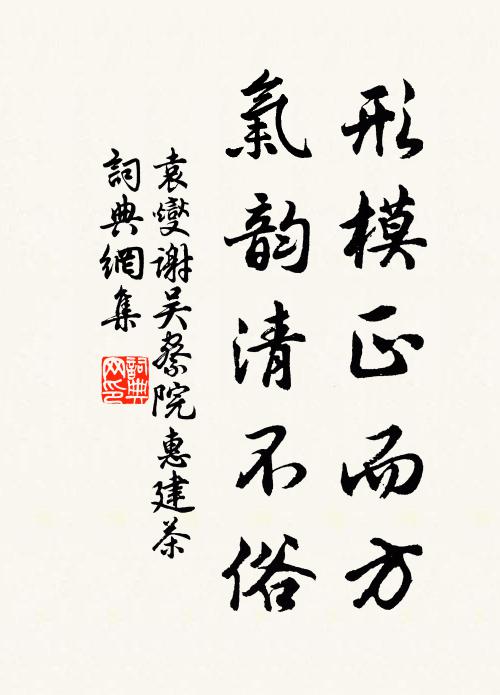 形模正而方
氣韵清不俗
袁燮谢吴察院惠建茶
詞典網集
詞典网印